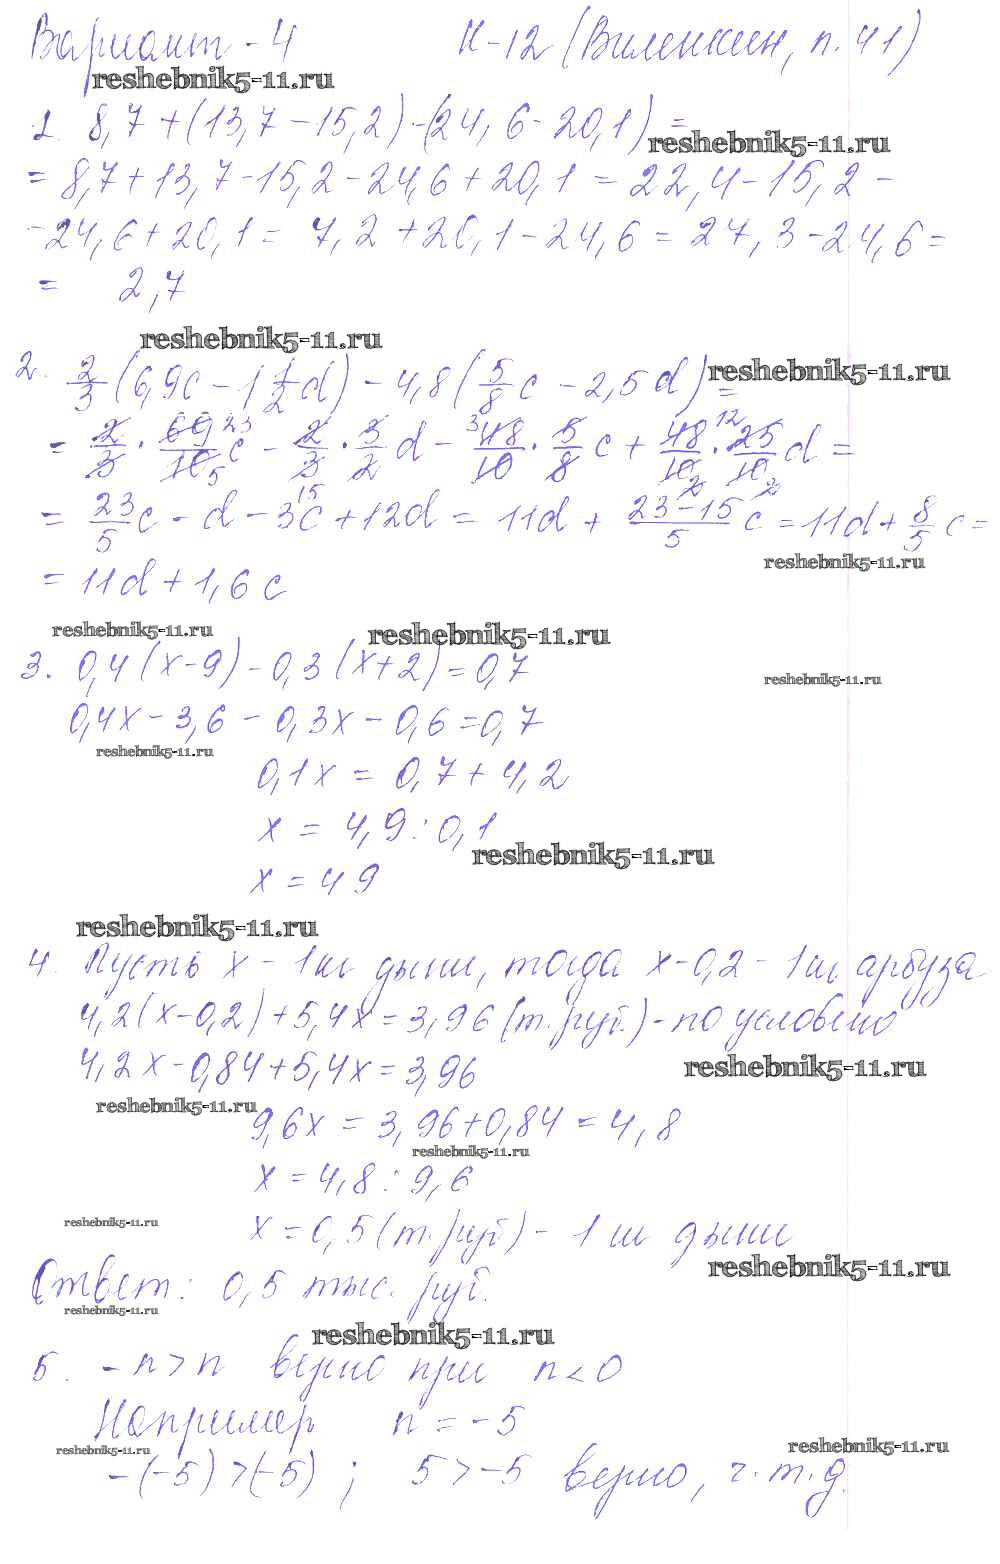 Вариант - 4 К-12 (Виленкин, п. 41)
reshebnik5-11.ru
1. 8,7 + (13,7 - 15,2) - (24,6 - 20,1) =
reshebnik5-11.ru
= 8,7 + 13,7 - 15,2 - 24,6 + 20,1 = 22,4 - 15,2 -
- 24,6 + 20,1 = 7,2 + 20,1 - 24,6 = 27,3 - 24,6 =
= 2,7
reshebnik5-11.ru
2. 2/3 (6,9c - 1 1/2 d) - 4,8 (5/8 c - 2,5d) =
reshebnik5-11.ru
= 2/3 · 69/10 c - 2/3 · 3/2 d - 48/10 · 5/8 c + 48/10 · 25/10 d =
= 23/5 c - d - 3c + 12d = 11d + (23 - 15)/5 c = 11d + 8/5 c =
reshebnik5-11.ru
= 11d + 1,6c
reshebnik5-11.ru
reshebnik5-11.ru
3. 0,4 (x - 9) - 0,3 (x + 2) = 0,7
reshebnik5-11.ru
0,4x - 3,6 - 0,3x - 0,6 = 0,7
reshebnik5-11.ru
0,1x = 0,7 + 4,2
x = 4,9 : 0,1
reshebnik5-11.ru
x = 49
reshebnik5-11.ru
4. Пусть x - 1 ш дыни, тогда x - 0,2 - 1 ш арбуза
4,2 (x - 0,2) + 5,4x = 3,96 (т. руб.) - по условию
4,2x - 0,84 + 5,4x = 3,96
reshebnik5-11.ru
reshebnik5-11.ru
9,6x = 3,96 + 0,84 = 4,8
reshebnik5-11.ru
x = 4,8 : 9,6
reshebnik5-11.ru
x = 0,5 (т. руб) - 1 ш дыни
reshebnik5-11.ru
Ответ: 0,5 тыс. руб.
reshebnik5-11.ru
reshebnik5-11.ru
5. - n > n верно при n < 0
Например n = -5
reshebnik5-11.ru
reshebnik5-11.ru
- (-5) > (-5) ; 5 > -5 верно, ч.т.д.